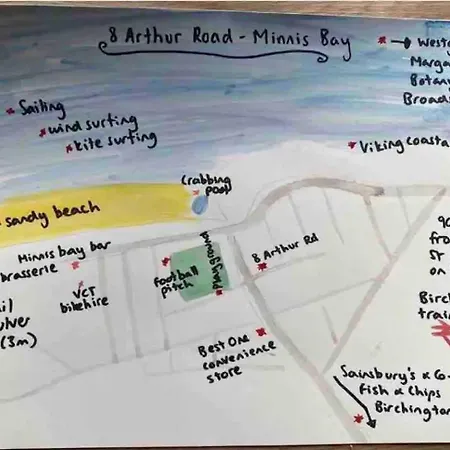 8 Arthur Road - Minnis Bay
Sailing
wind surfing
kite surfing
Viking coasta
Crabbing
pool
sandy beach
Minnis bay bar
brasserie
VCT
bikehire
Football
pitch
Playground
8 Arthur Rd
Best One
convenience
store
(3m)
fro
on
Birch
trai
Sainsbury's & Co-
Fish & Chips
Birchington